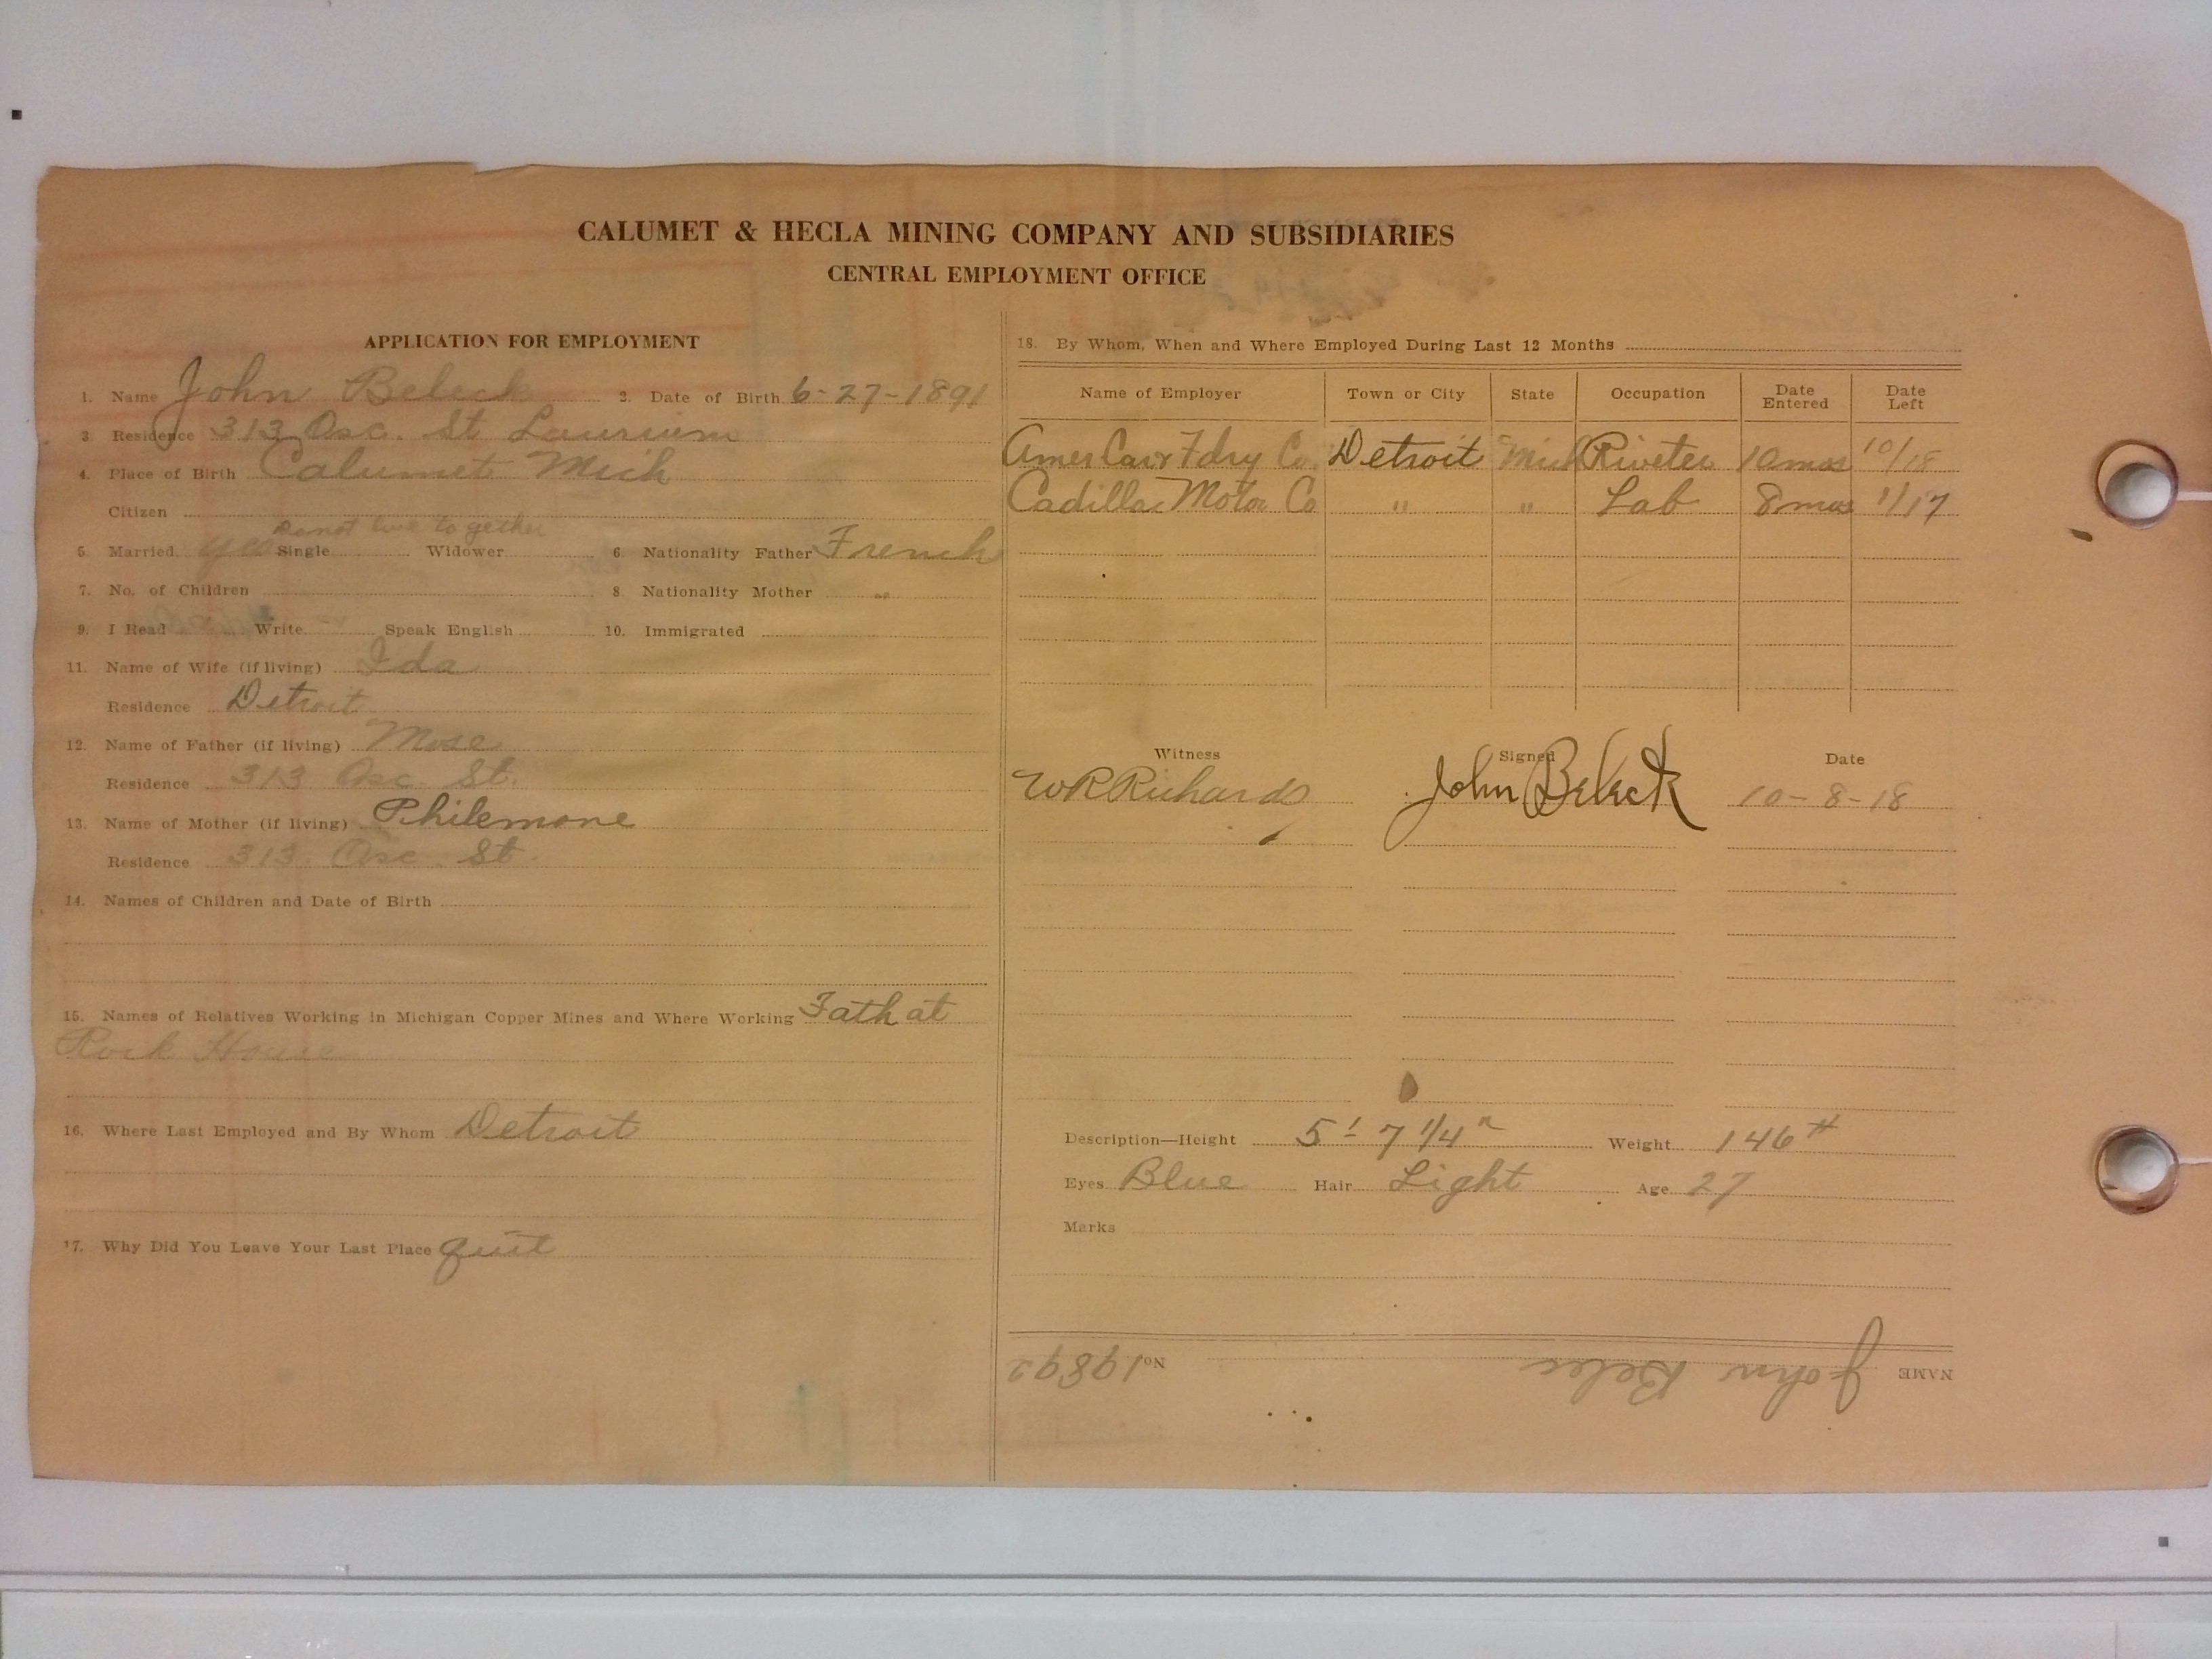 CALUMET & HECLA MINING COMPANY AND SUBSIDIARIES
CENTRAL EMPLOYMENT OFFICE
APPLICATION FOR EMPLOYMENT
1. Name John Beleck 2. Date of Birth 6-27-1891
3 Residence 313 Osc. St Laurium
4. Place of Birth Calumet Mich
Citizen
Do not live together
5. Married yes Single Widower 6. Nationality Father French
7. No. of Children 8 Nationality Mother "
9. I Read Write Speak English 10. Immigrated
11. Name of Wife (if living) Ida
Residence Detroit
12. Name of Father (if living) Mose
Residence 313 Osc. St.
13. Name of Mother (if living) Philemone
Residence 313 Osc. St.
14. Names of Children and Date of Birth
15. Names of Relatives Working in Michigan Copper Mines and Where Working Fath at
Rock House
16. Where Last Employed and By Whom Detroit
17. Why Did You Leave Your Last Place quit
18. By Whom, When and Where Employed During Last 12 Months
Name of Employer Town or City State Occupation Date Entered Date Left
Amer Car & Fdry Co. Detroit Mich Riveter 10 mos 10/18
Cadillac Motor Co " " Lab 8 mos 1/17
Witness Signed Date
W R Richards John Beleck 10-8-18
Description—Height 5' 7 1/4" Weight 146 #
Eyes Blue Hair Light Age 27
Marks
NAME John Belec No 19892